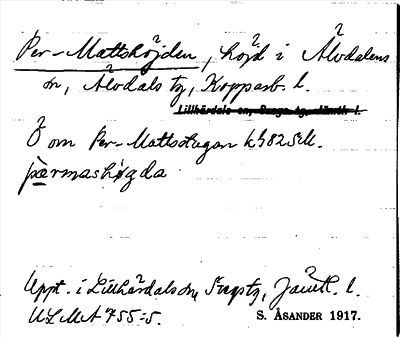 Per-Mattshöjden, höjd i Älvdalens
sn, Älvdals tg, Kopparb. l.
Lillhärdals sn, Svegs tg, Jämtl. l.
Ö om Per-Mattsstugan
pärmashøgda
Uppt. i Lillhärdals sn, Svegs tg, Jämtl. l.
ULMA 755:5. S. ÅSANDER 1917.